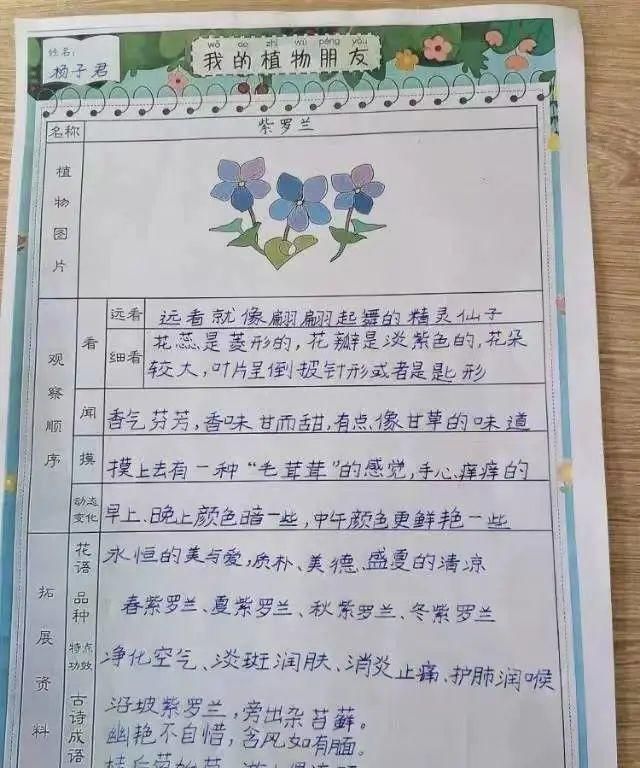 姓名:
杨子君
wǒ de zhí wù péng yǒu
我的植物朋友
名称
紫罗兰
植物图片
观察顺序
看
远看
远看就像翩翩起舞的精灵仙子
细看
花蕊是菱形的,花瓣是淡紫色的,花朵
较大,叶片呈倒披针形或者是匙形
闻
香气芬芳,香味甘而甜,有点像甘草的味道
摸
摸上去有一种“毛茸茸”的感觉,手心痒痒的
动态
变化
早上、晚上颜色暗一些,中午颜色更鲜艳一些
拓展资料
花语
永恒的美与爱,质朴、美德、盛夏的清凉
品种
春紫罗兰、夏紫罗兰、秋紫罗兰、冬紫罗兰
特点
功效
净化空气、淡斑润肤、消炎止痛、护肺润喉
古诗成语
沿坡紫罗兰,旁出杂苔藓。
幽艳不自惜,含风如有腼。